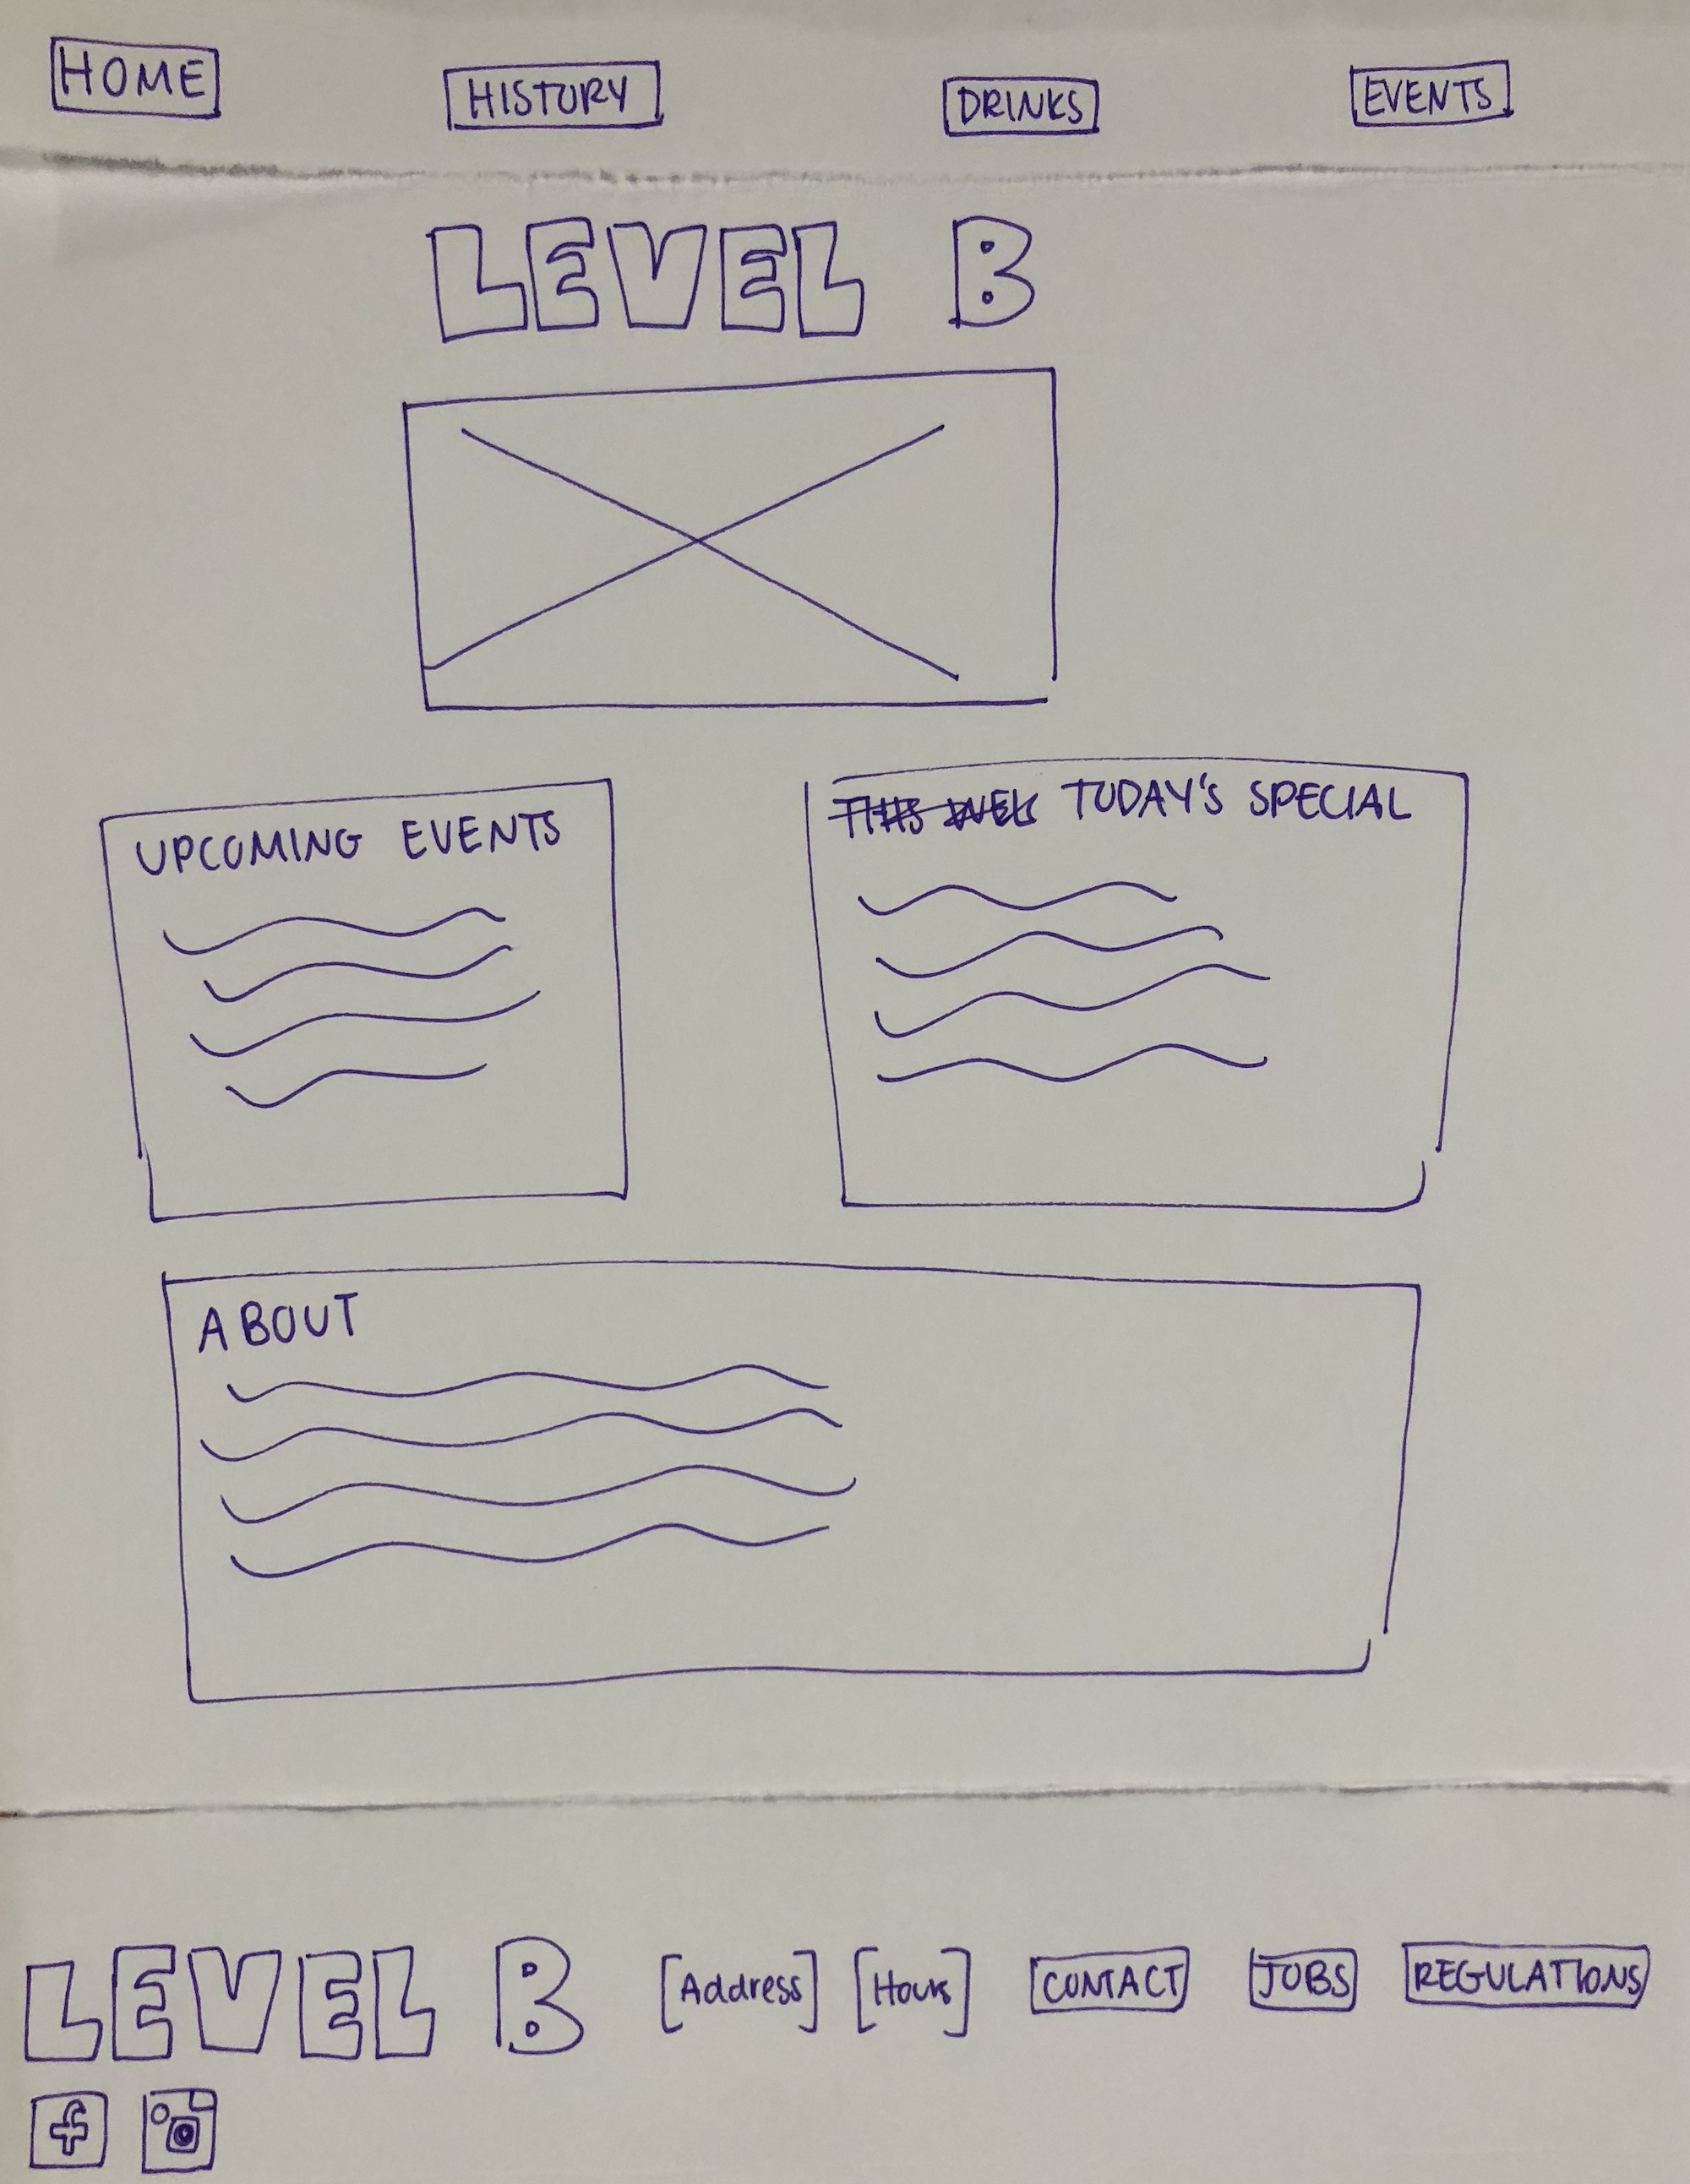 HOME HISTORY DRINKS EVENTS
LEVEL B
UPCOMING EVENTS
TODAY'S SPECIAL
ABOUT
LEVEL B [Address] [Hours] CONTACT JOBS REGULATIONS
f